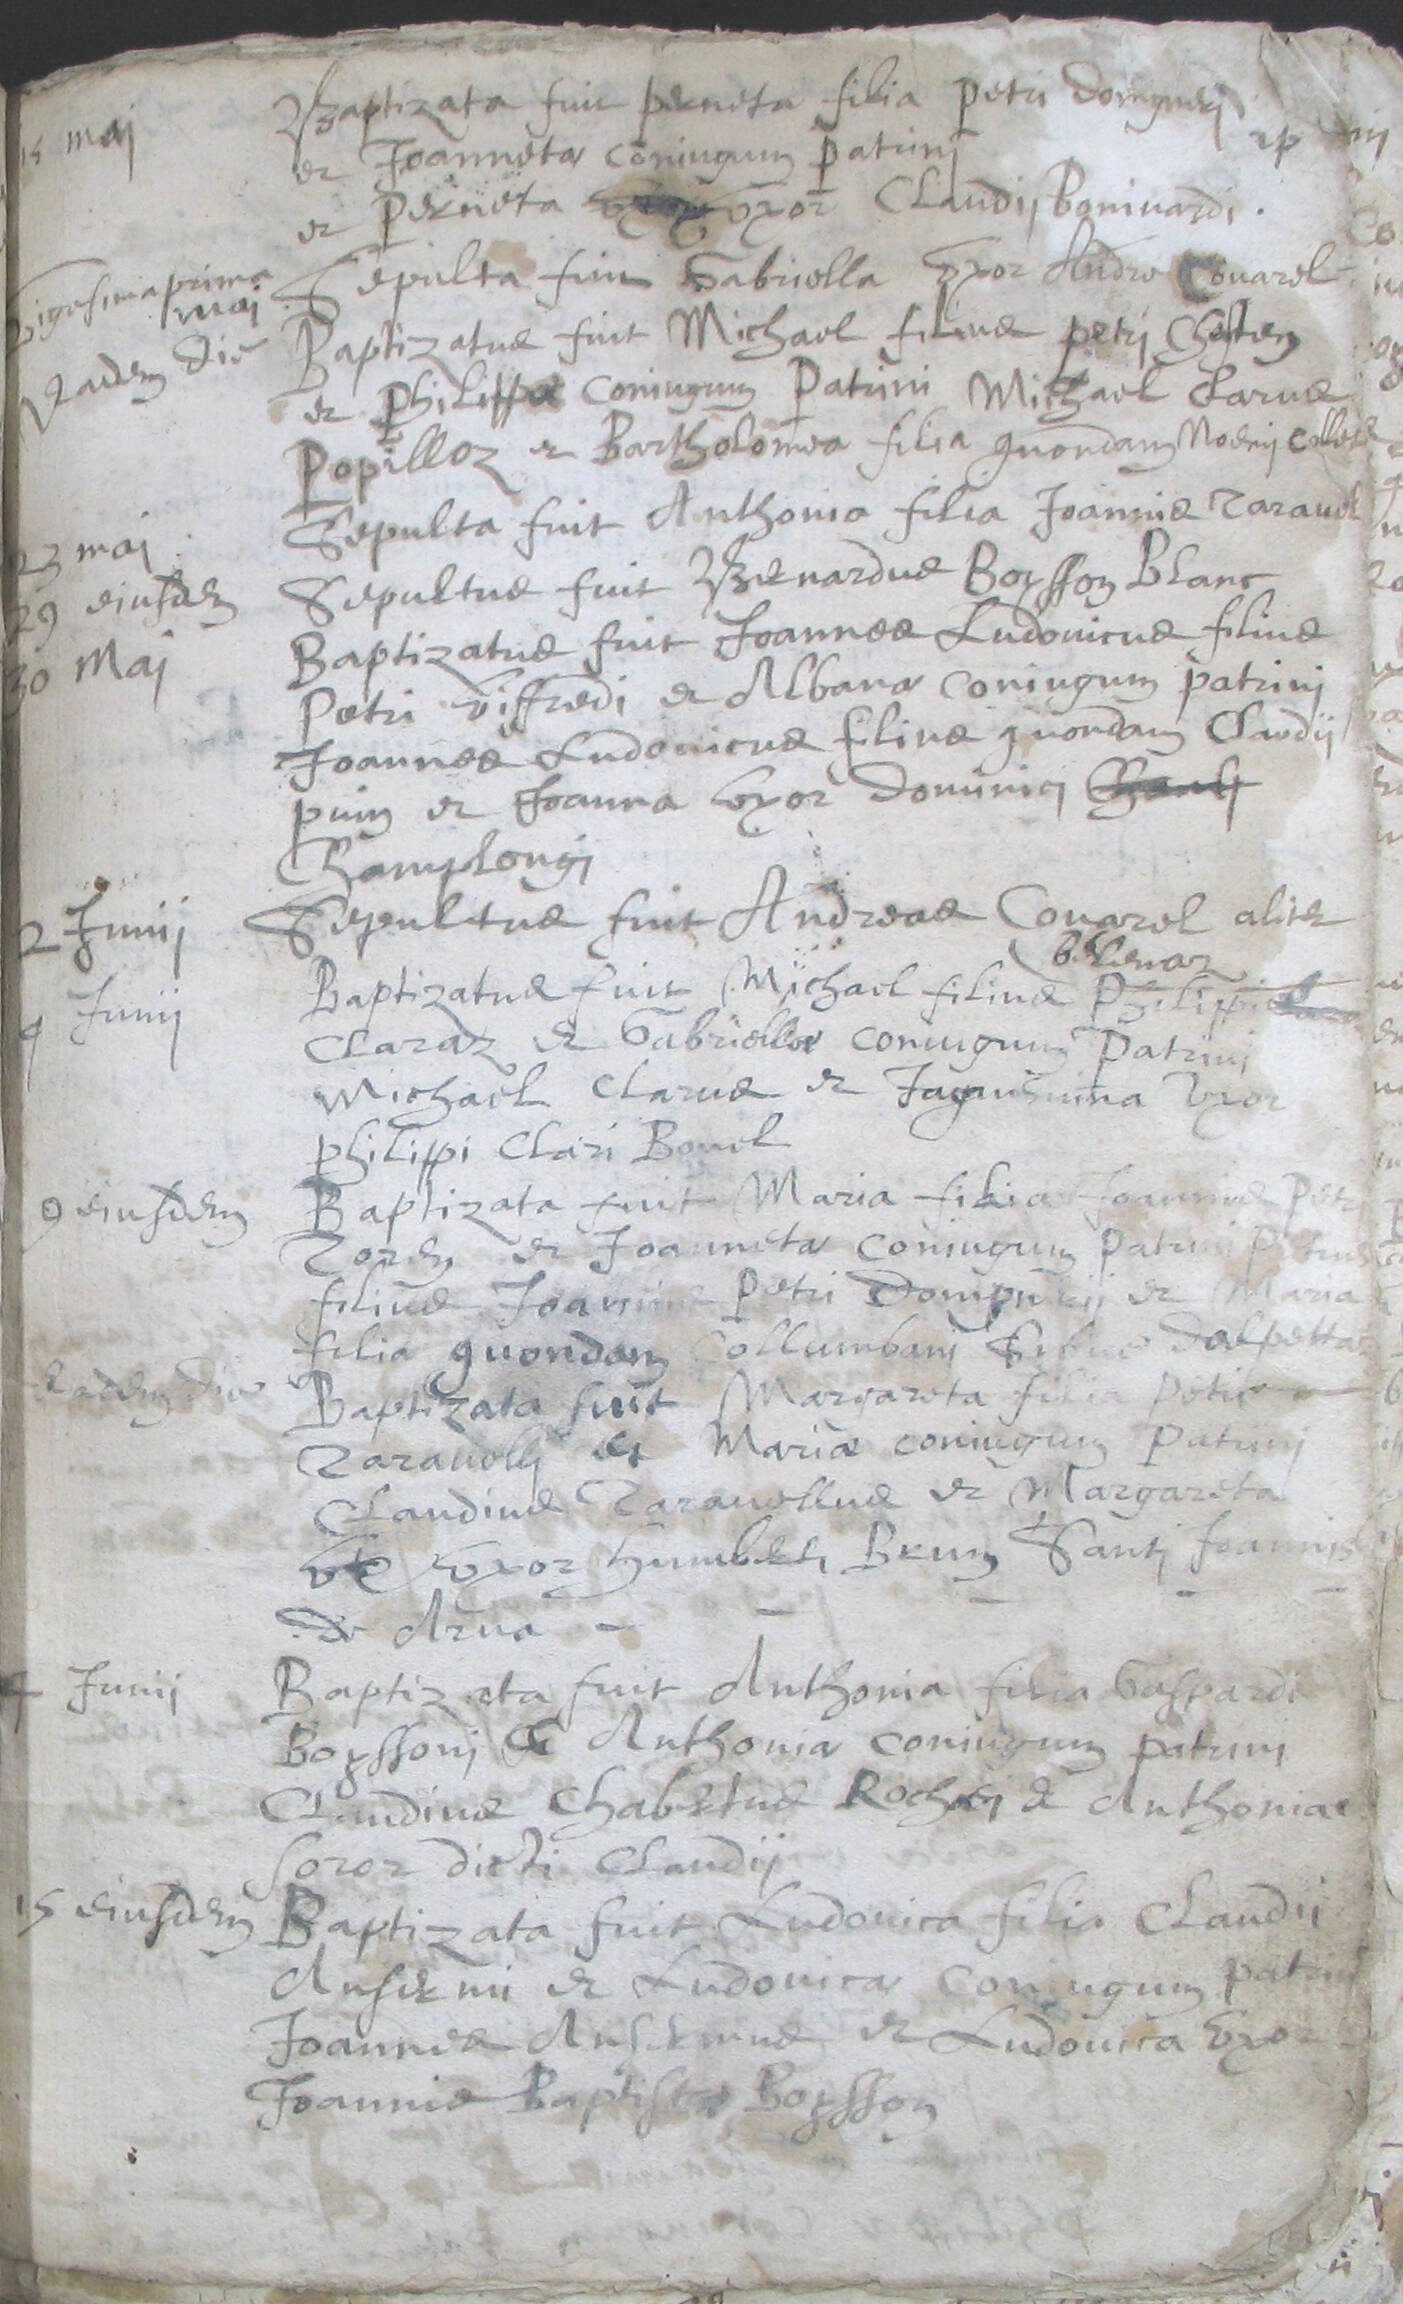 15 maij Baptizata fuit perneta filia petri domgnerij
et Joannetæ coniugum patrini
et perneta uxor Claudij Boniuardi.
Vigesima prima maij Sepulta fuit Gabriella uxor Andre Couarel
Eadem die Baptizatus fuit Michael filius petri
et philippæ coniugum patrini Michael Clarus
Popilloz et Bartholomea filia quondam Noemj
23 maij Sepulta fuit Anthonia filia Joannis Tarauel
29 eiusdem Sepultus fuit Bernardus Boysson Blanc
30 Maij Baptizatus fuit Joannes Ludouicus filius
Petri viffredi et Albanæ coniugum patrini
Joannes Ludouicus filius quondam Claudij
puin et Joanna uxor dominici
Champlongj
2 Junij Sepultus fuit Andreas Couarel aliter
belenaz
4 Junij Baptizatus fuit Michael filius Philippi
Claraz et Gabriellæ coniugum patrini
Michael Clarus et Jaquemina uxor
philippi Clari Bouel
9 eiusdem Baptizata fuit Maria filia Joannis petri
Zoren et Joannetæ coniugum patrini petrus
filius Joannis petri Domgnerij et Maria
filia quondam Collumbani dalpettaz
Eadem die Baptizata fuit Margareta filia petri
Tarauellj et Mariæ coniugum patrini
Claudius Tarauellus et Margareta
uxor humberti Brun Santj Joannis
de Arua
Junij Baptizata fuit Anthonia filia Gaspardi
Boyssonj & Anthoniæ coniugum patrini
Claudius Chabertus Rochetj & Anthonia
soror dicti Claudij
15 eiusdem Baptizata fuit Ludouica filia Claudii
Anselmi et Ludouicæ coniugum patrini
Joannes Anselmus et Ludouica uxor
Joannis Baptistæ Boysson